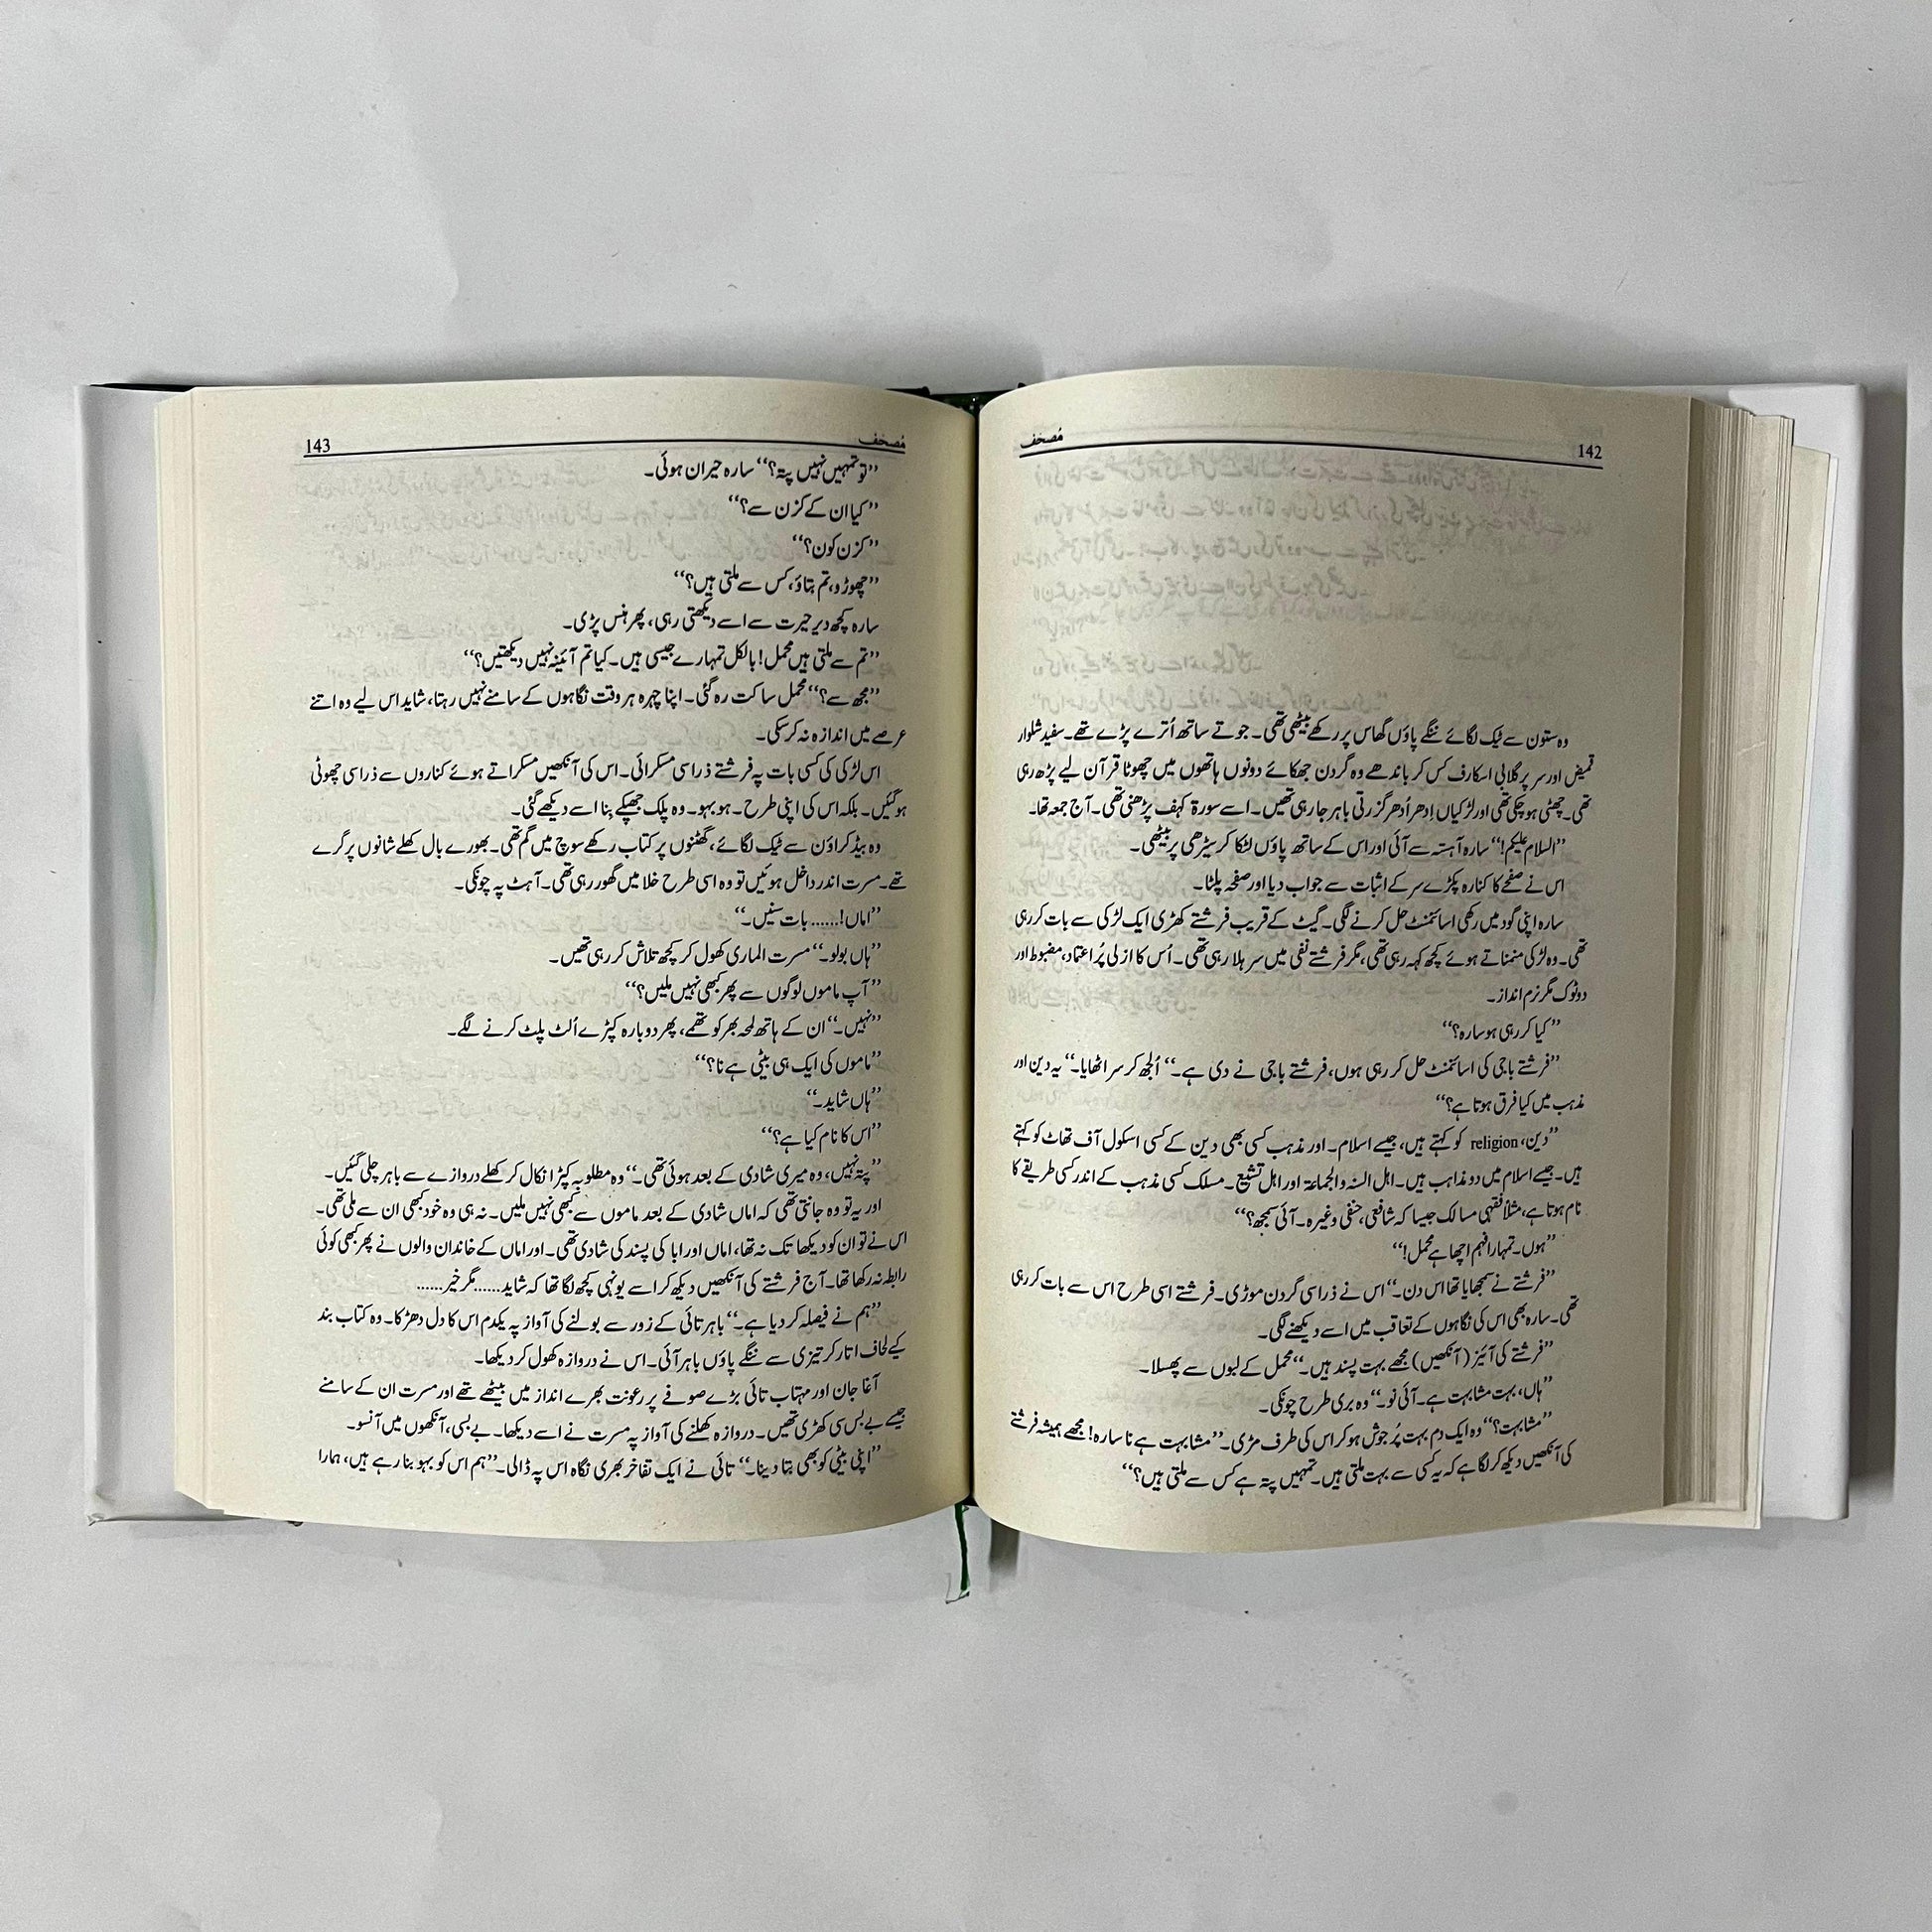 142
مُصحَف
وہ ستون سے ٹیک لگائے ننگے پاؤں گھاس پر رکھے بیٹھی تھی۔ جوتے ساتھ اُترے پڑے تھے۔ سفید شلوار
قمیض اور سر پر گلابی اسکارف کس کر باندھے وہ گردن جھکائے دونوں ہاتھوں میں چھوٹا قرآن لیے پڑھ رہی
تھی۔ چھٹی ہوچکی تھی اور لڑکیاں اِدھر اُدھر گزرتی باہر جا رہی تھیں۔ اسے سورۃ کہف پڑھنی تھی۔ آج جمعہ تھا۔
’’السلام علیکم!‘‘ سارہ آہستہ سے آئی اور اس کے ساتھ پاؤں لٹکا کر سیڑھی پر بیٹھی۔
اس نے صفحے کا کنارہ پکڑے سر کے اثبات سے جواب دیا اور صفحہ پلٹا۔
سارہ اپنی گود میں رکھی اسائنمنٹ حل کرنے لگی۔ گیٹ کے قریب فرشتے کھڑی ایک لڑکی سے بات کر رہی
تھی۔ وہ لڑکی منمناتے ہوئے کچھ کہہ رہی تھی، مگر فرشتے نفی میں سر ہلا رہی تھی۔ اُس کا ازلی پُراعتماد، مضبوط اور
دوٹوک مگر نرم انداز۔
’’کیا کر رہی ہو سارہ؟‘‘
’’فرشتے باجی کی اسائنمنٹ حل کر رہی ہوں، فرشتے باجی نے دی ہے۔‘‘ اُلجھ کر سر اٹھایا۔ ’’یہ دین اور
مذہب میں کیا فرق ہوتا ہے؟‘‘
’’دین، religion کو کہتے ہیں، جیسے اسلام۔ اور مذہب کسی بھی دین کے کسی اسکول آف تھاٹ کو کہتے
ہیں۔ جیسے اسلام میں دو مذاہب ہیں۔ اہل السنہ والجماعۃ اور اہل تشیع۔ مسلک کسی مذہب کے اندر کسی طریقے کا
نام ہوتا ہے، مثلاً فقہی مسالک جیسا کہ شافعی، حنفی وغیرہ۔ آئی سمجھ؟‘‘
’’ہوں۔ تمہارا فہم اچھا ہے محمل!‘‘
’’فرشتے نے سمجھایا تھا اس دن۔‘‘ اس نے ذرا سی گردن موڑی۔ فرشتے اسی طرح اس سے بات کر رہی
تھی۔ سارہ بھی اس کی نگاہوں کے تعاقب میں اسے دیکھنے لگی۔
’’فرشتے کی آئیز (آنکھیں) مجھے بہت پسند ہیں۔‘‘ محمل کے لبوں سے پھسلا۔
’’ہاں، بہت مشابہت ہے۔ آئی نو۔‘‘ وہ بری طرح چونکی۔
’’مشابہت؟‘‘ وہ ایک دم بہت پُرجوش ہو کر اس کی طرف مڑی۔ ’’مشابہت ہے نا سارہ! مجھے ہمیشہ فرشتے
کی آنکھیں دیکھ کر لگا ہے کہ یہ کسی سے بہت ملتی ہیں۔ تمہیں پتہ ہے کس سے ملتی ہیں؟‘‘
مُصحَف
143
’’تو تمہیں نہیں پتہ؟‘‘ سارہ حیران ہوئی۔
’’کیا ان کے کزن سے؟‘‘
’’کزن کون؟‘‘
’’چھوڑو، تم بتاؤ، کس سے ملتی ہیں؟‘‘
سارہ کچھ دیر حیرت سے اسے دیکھتی رہی، پھر ہنس پڑی۔
’’تم سے ملتی ہیں محمل! بالکل تمہارے جیسی ہیں۔ کیا تم آئینہ نہیں دیکھتیں؟‘‘
’’مجھ سے؟‘‘ محمل ساکت رہ گئی۔ اپنا چہرہ ہر وقت نگاہوں کے سامنے نہیں رہتا، شاید اس لیے وہ اتنے
عرصے میں اندازہ نہ کرسکی۔
اس لڑکی کی کسی بات پہ فرشتے ذرا سی مسکرائی۔ اس کی آنکھیں مسکراتے ہوئے کناروں سے ذرا سی چھوٹی
ہوگئیں۔ بلکہ اس کی اپنی طرح۔ ہو بہو۔ وہ پلک جھپکے بِنا اسے دیکھے گئی۔
وہ بیڈ کراؤن سے ٹیک لگائے، گھٹنوں پر کتاب رکھے سوچ میں گم تھی۔ بھورے بال کھلے شانوں پر گرے
تھے۔ مسرت اندر داخل ہوئیں تو وہ اسی طرح خلا میں گھور رہی تھی۔ آہٹ پہ چونکی۔
’’اماں!...... بات سنیں۔‘‘
’’ہاں بولو۔‘‘ مسرت الماری کھول کر کچھ تلاش کر رہی تھیں۔
’’آپ ماموں لوگوں سے پھر کبھی نہیں ملیں؟‘‘
’’نہیں۔‘‘ ان کے ہاتھ لمحہ بھر کو تھمے، پھر دوبارہ کپڑے اُلٹ پلٹ کرنے لگے۔
’’ماموں کی ایک ہی بیٹی ہے نا؟‘‘
’’ہاں شاید۔‘‘
’’اس کا نام کیا ہے؟‘‘
’’پتہ نہیں، وہ میری شادی کے بعد ہوئی تھی۔‘‘ وہ مطلوبہ کپڑا نکال کر کھلے دروازے سے باہر چلی گئیں۔
اور یہ تو وہ جانتی تھی کہ اماں شادی کے بعد ماموں سے کبھی نہیں ملیں۔ نہ ہی وہ خود کبھی ان سے ملی تھی۔
اس نے تو ان کو دیکھا تک نہ تھا، اماں اور ابا کی پسند کی شادی تھی۔ اور اماں کے خاندان والوں نے پھر کبھی کوئی
رابطہ نہ رکھا تھا۔ آج فرشتے کی آنکھیں دیکھ کر اسے یونہی کچھ لگا تھا کہ شاید...... مگر خیر......
’’ہم نے فیصلہ کر دیا ہے۔‘‘ باہر تائی کے زور سے بولنے کی آواز پہ یکدم اس کا دل دھڑکا۔ وہ کتاب بند
کیے لحاف اتار کر تیزی سے ننگے پاؤں باہر آئی۔ اس نے دروازہ کھول کر دیکھا۔
آغا جان اور مہتاب تائی بڑے صوفے پر رعونت بھرے انداز میں بیٹھے تھے اور مسرت ان کے سامنے
جیسے بے بس سی کھڑی تھیں۔ دروازہ کھلنے کی آواز پہ مسرت نے اسے دیکھا۔ بے بسی، آنکھوں میں آنسو۔
’’اپنی بیٹی کو بھی بتا دینا۔‘‘ تائی نے ایک تفاخر بھری نگاہ اس پہ ڈالی۔ ’’ہم اس کو بہو بنا رہے ہیں، ہمارا